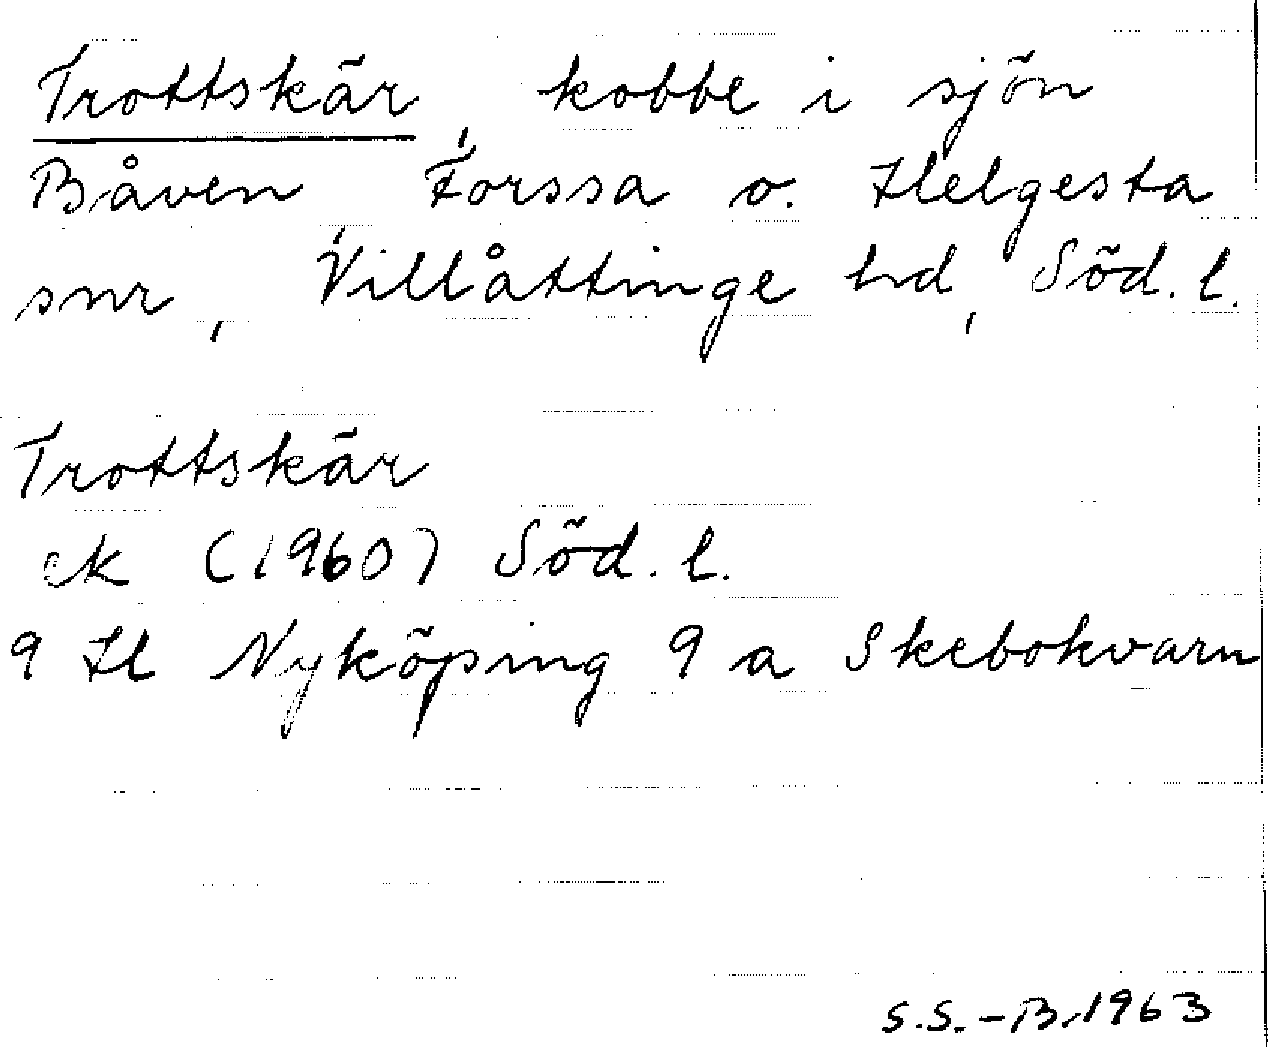 Trottskär, kobbe i sjön
Båven, Forssa o. Helgesta
snr, Villåttinge hd, Söd. l.
Trottskär
ek (1960) Söd. l.
9 H Nyköping 9 a Skebokvarn
S.S.-B. 1963